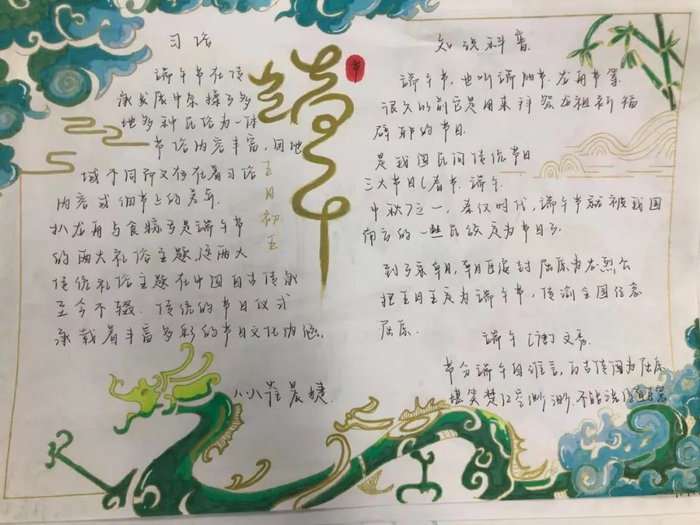 习俗
端午节在传
承发展中杂揉了多
地多种民俗为一体
节俗内容丰富,因地
域不同而又存在着习俗
内容或细节上的差异
扒龙舟与食粽子是端午节
的两大礼俗主题,这两大
传统礼俗主题在中国自古传承
至今不辍.传统的节日仪式
承载着丰富多彩的节日文化内涵
五月初五
端午
节
知识科普
端午节,也叫端阳节.龙舟节等
很久以前它是用来拜祭龙祖祈福
辟邪的节日.
是我国民间传统节日
三大节日(春节.端午.
中秋)之一,秦汉时代,端午节就被我国
南方的一些民族定为节日了
把五月五定为端午节,传谕全国纪念
屈原.
端午(唐)文秀.
节分端午自谁言,万古传闻为屈原
堪笑楚江空渺渺.不能洗得直臣冤